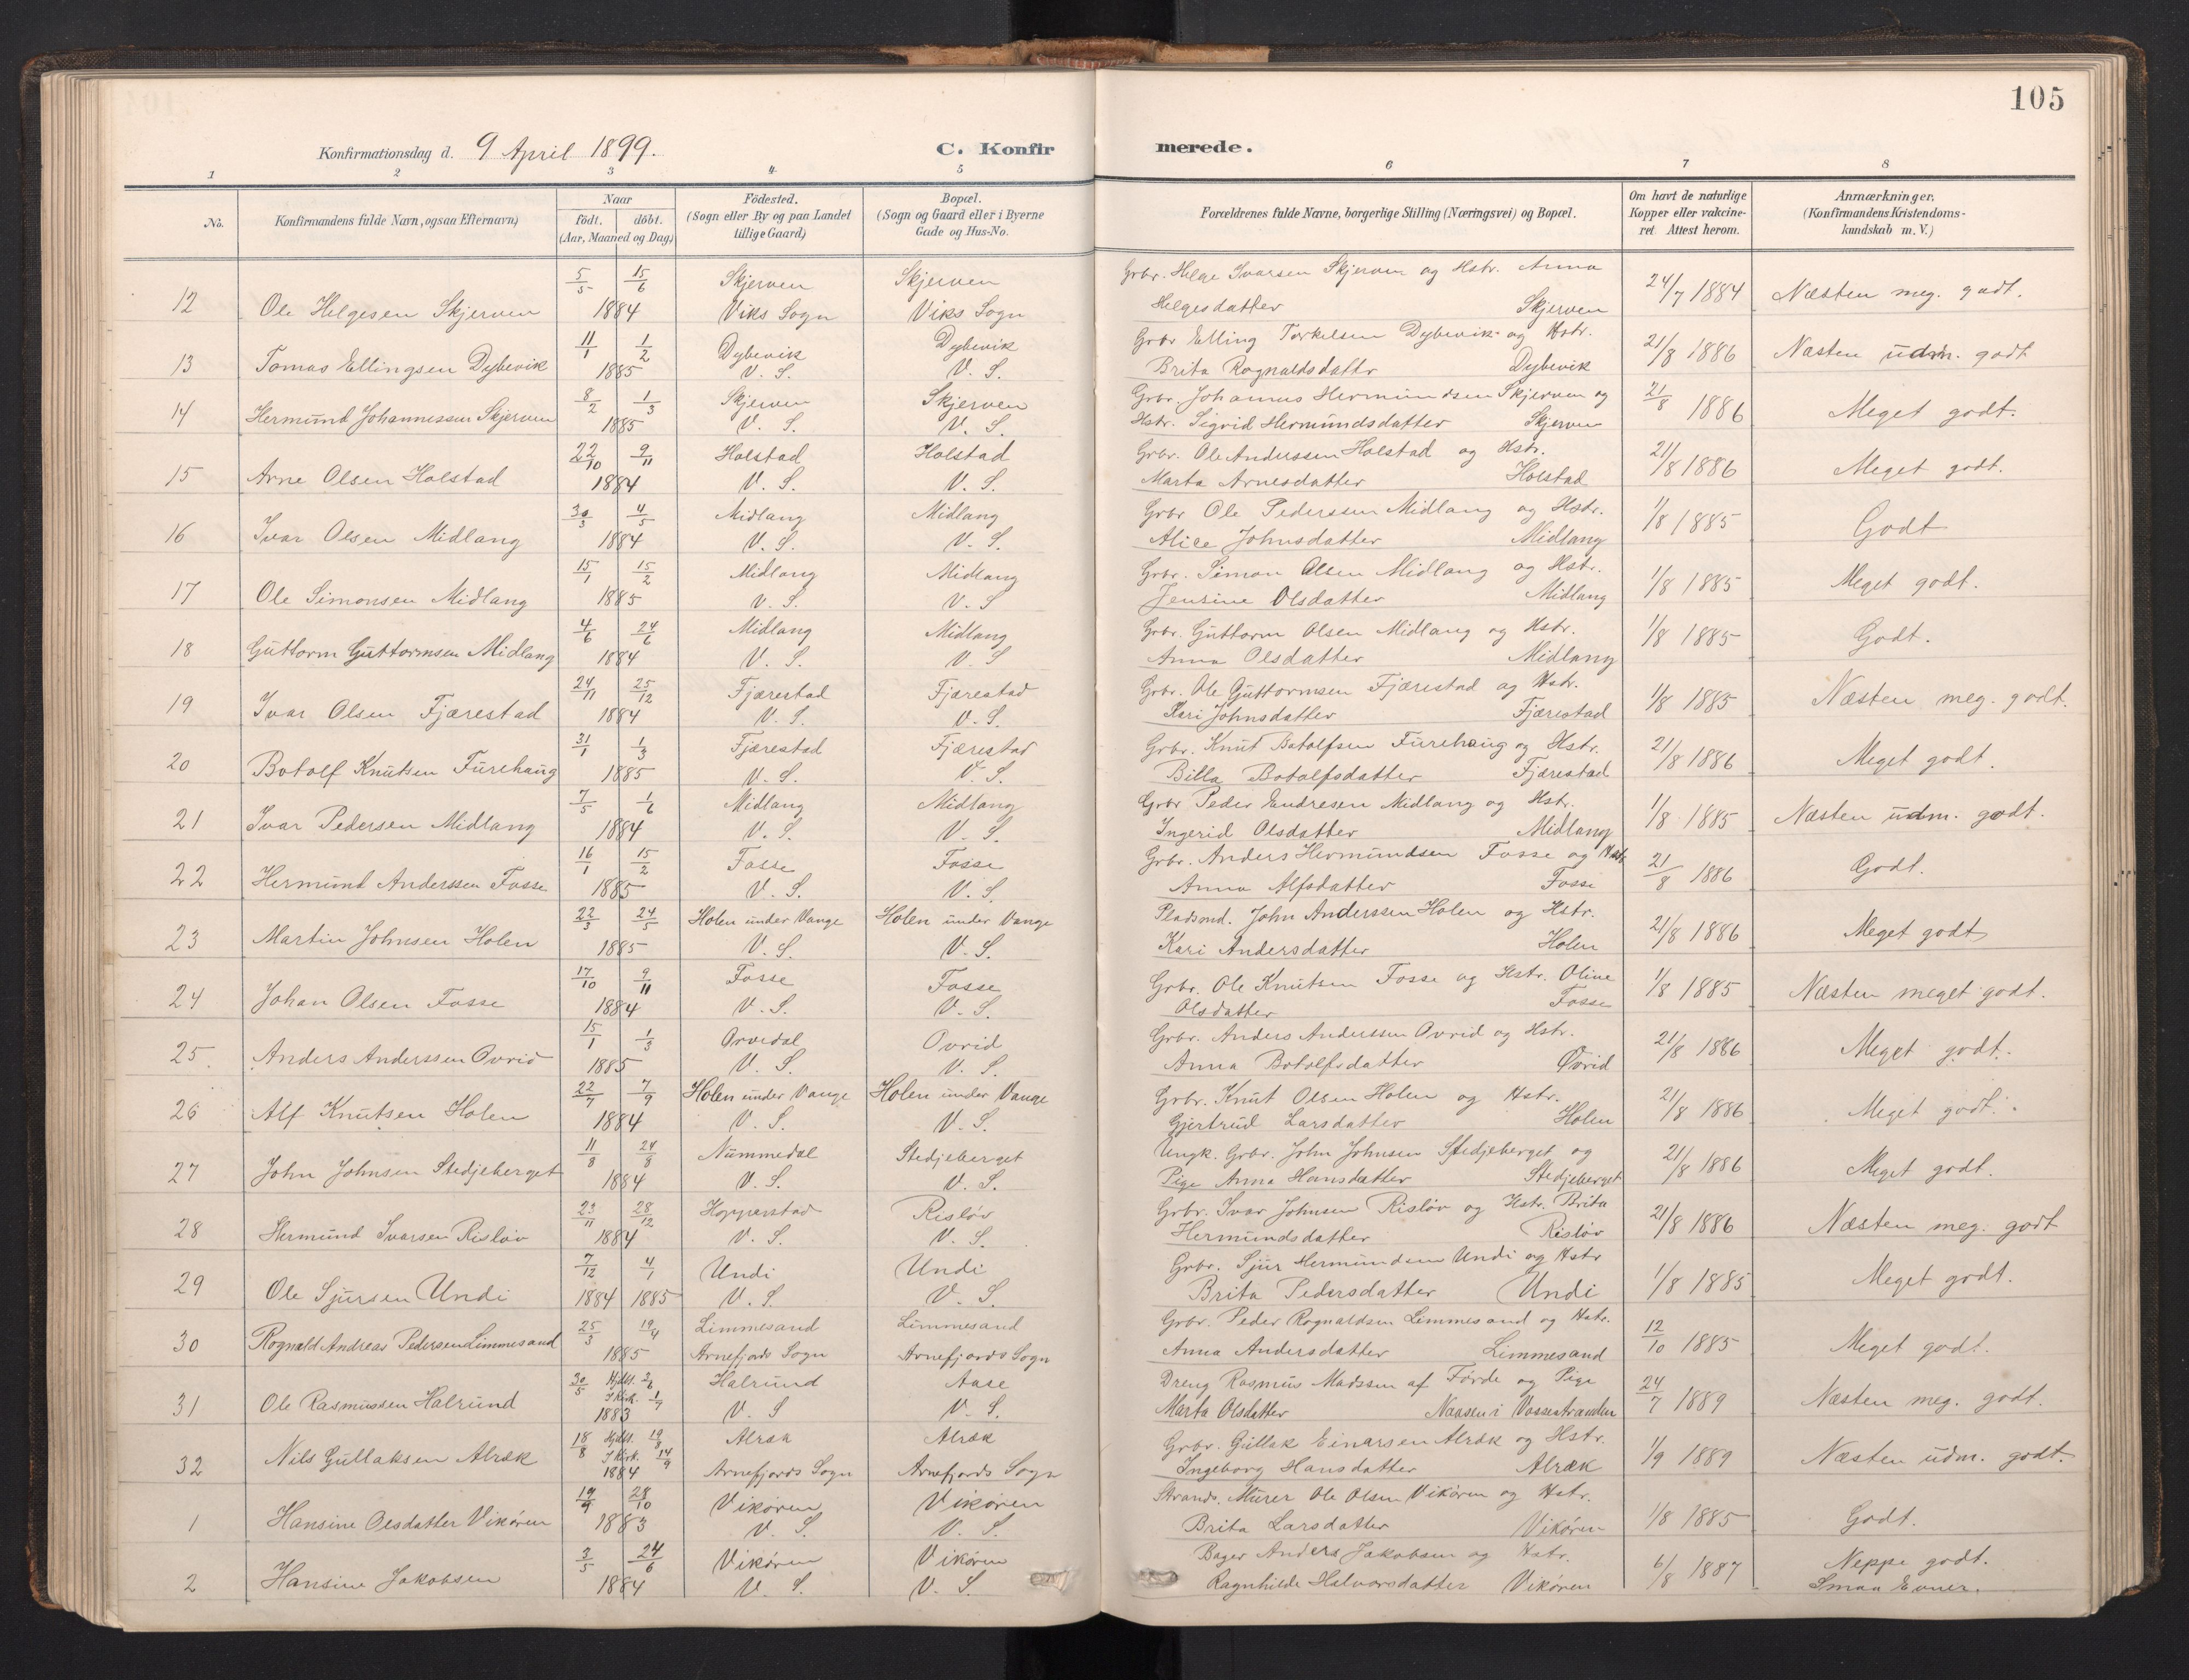 105
Konfirmationsdag d. 9 April 1899. C. Konfirmerede.
1 2 3 4 5 6 7 8
No. Konfirmandens fulde Navn, ogsaa Efternavn) Naar födt. döbt. (Aar, Maaned og Dag.) Födested. (Sogn eller By og paa Landet tillige Gaard) Bopæl. (Sogn og Gaard eller i Byerne Gade og Hus-No. Forældrenes fulde Navne, borgerlige Stilling (Næringsvei) og Bopæl. Om havt de naturlige Kopper eller vakcineret. Attest herom. Anmærkninger. (Konfirmandens Kristendomskundskab m. V.)
5/5 15/6 Skjerven Skjerven Grbr. Helge Ivarsen Skjerven og Hstr. Anna
12 Ole Helgesen Skjerven 1884 Viks Sogn Viks Sogn Helgesdatter Skjerven 24/7 1884 Næsten meg. godt.
11/1 1/2 Dybevik Dybevik Grbr Elling Torkelsen Dybevik og Hstr.
13 Tomas Ellingsen Dybevik 1885 V. S. V. S. Brita Rognaldsdattr Dybevik 21/8 1886 Næsten udm. godt
8/2 1/3 Skjerven Skjerven Grbr. Johannes Hermundsen Skjerven og
14 Hermund Johannessen Skjerven 1885 V. S. V. S. Hstr. Sigrid Hermundsdatter Skjerven 21/8 1886 Meget godt.
22/10 9/11 Holstad Holstad Grbr. Ole Anderssen Holstad og Hstr.
15 Arne Olsen Holstad 1884 V. S. V. S. Marta Arnesdatter Holstad 21/8 1886 Meget godt.
30/3 4/5 Midlang Midlang Grbr Ole Pederssen Midlang og Hstr.
16 Ivar Olsen Midlang 1884 V. S. V. S. Alice Johnsdatter Midlang 1/8 1885 Godt
15/1 15/2 Midlang Midlang Grbr. Simon Olsen Midlang og Hstr.
17 Ole Simonsen Midlang 1885 V. S. V. S Jensine Olsdatter Midlang 1/8 1885 Meget godt.
4/6 24/6 Midlang Midlang Grbr. Guttorm Olsen Midlang og Hstr.
18 Guttorm Guttormsen Midlang 1884 V. S. V. S Anna Olsdatter Midlang 1/8 1885 Godt.
24/11 25/12 Fjærestad Fjærestad Grbr. Ole Guttormsen Fjærestad og Hstr.
19 Ivar Olsen Fjærestad 1884 V. S. V. S. Kari Johnsdatter Fjærestad 1/8 1885 Næsten meg. godt.
31/1 1/3 Fjærestad Fjærestad Grbr. Knut Botolfsen Furehaug og Hstr.
20 Botolf Knutsen Furehaug 1885 V. S. V. S. Billa Botolfsdatter Fjærestad 21/8 1886 Meget godt.
7/5 1/6 Midlang Midlang Grbr Peder Endresen Midlang og Hstr.
21 Ivar Pedersen Midlang 1884 V. S. V. S. Ingerid Olsdatter Midlang 1/8 1885 Næsten udm. godt.
16/1 15/2 Fosse Fosse Grbr. Anders Hermundsen Fosse og Hstr
22 Hermund Anderssen Fosse 1885 V. S. V. S. Anna Alfsdatter Fosse 21/8 1886 Godt.
22/3 24/5 Holen under Vange Holen under Vange Pladsmd. John Anderssen Holen og Hstr.
23 Martin Johnsen Holen 1885 V. S. V. S. Kari Andersdatter Holen 21/8 1886 Meget godt
17/10 9/11 Fosse Fosse Grbr. Ole Knutsen Fosse og Hstr. Oline
24 Johan Olsen Fosse 1884 V. S. V. S. Olsdatter Fosse 1/8 1885 Næsten meget godt.
15/1 1/3 Orvedal Ovrid Grbr. Anders Anderssen Ovrid og Hstr.
25 Anders Anderssen Ovrid 1885 V. S. V. S. Anna Botolfsdatter Øvrid 21/8 1886 Meget godt.
22/7 7/9 Holen under Vange Holen under Vange Grbr. Knut Olsen Holen og Hstr.
26 Alf Knutsen Holen 1884 V. S. V. S. Gjertrud Larsdatter Holen 21/8 1886 Meget godt.
11/8 24/8 Nummedal Stedjeberget Ungk. Grbr. John Johnsen Stedjeberget og
27 John Johnsen Stedjeberget 1884 V. S. V. S. Pige Anna Hansdatter Stedjeberget 21/8 1886 Meget godt.
23/11 28/12 Hopperstad Risløv Grbr. Ivar Johnsen Risløv og Hstr. Brita
28 Hermund Ivarsen Risløv 1884 V. S. V. S. Hermundsdatter Risløv 21/8 1886 Næsten meg. godt
7/12 4/1 Undi Undi Grbr. Sjur Hermundsen Undi og Hstr
29 Ole Sjursen Undi 1884 1885 V. S. V. S. Brita Pedersdatter Undi 1/8 1885 Meget godt.
25/3 19/4 Limmesand Limmesand Grbr. Peder Rognaldsen Limmesand og Hstr.
30 Rognald Andreas Pedersen Limmesand 1885 Arnefjords Sogn Arnefjords Sogn Anna Andersdatter Limmesand 12/10 1885 Meget godt.
30/5 Hjdbt. 2/6 I Kirk. 1/7 Halrund Aase Dreng Rasmus Madssen af Førde og Pige
31 Ole Rasmussen Halrund 1883 V. S V. S. Marta Olsdatter Naasen i Vossestranden 24/7 1889 Næsten meg. godt.
18/8 Hjdbt. 19/8 I Kirk. 14/9 Alræk Alræk Grbr. Gullak Einarsen Alræk og Hstr.
32 Nils Gullaksen Alræk 1884 Arnefjords Sogn Arnefjords Sogn Ingeborg Hansdatter Alræk 1/9 1889 Næsten udm. godt.
19/9 28/10 Vikøren Vikøren Strands. Murer Ole Olsen Vikøren og Hstr.
1 Hansine Olsdatter Vikøren 1883 V. S. V. S. Brita Larsdatter Vikøren 1/8 1885 Godt.
3/5 24/6 Vikøren Vikøren Bager Anders Jakobsen og Hstr. Neppe godt.
2 Hansine Jakobsen 1884 V. S. V. S. Ragnhilde Halvorsdatter Vikøren 6/8 1887 Smaa Evner.